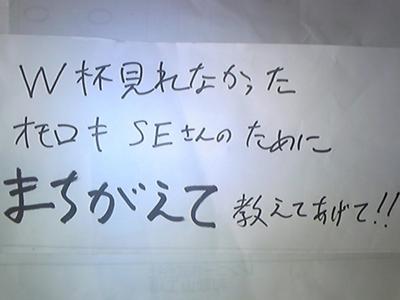 W杯見れなかった
オモロキSEさんのために
まちがえて教えてあげて!!